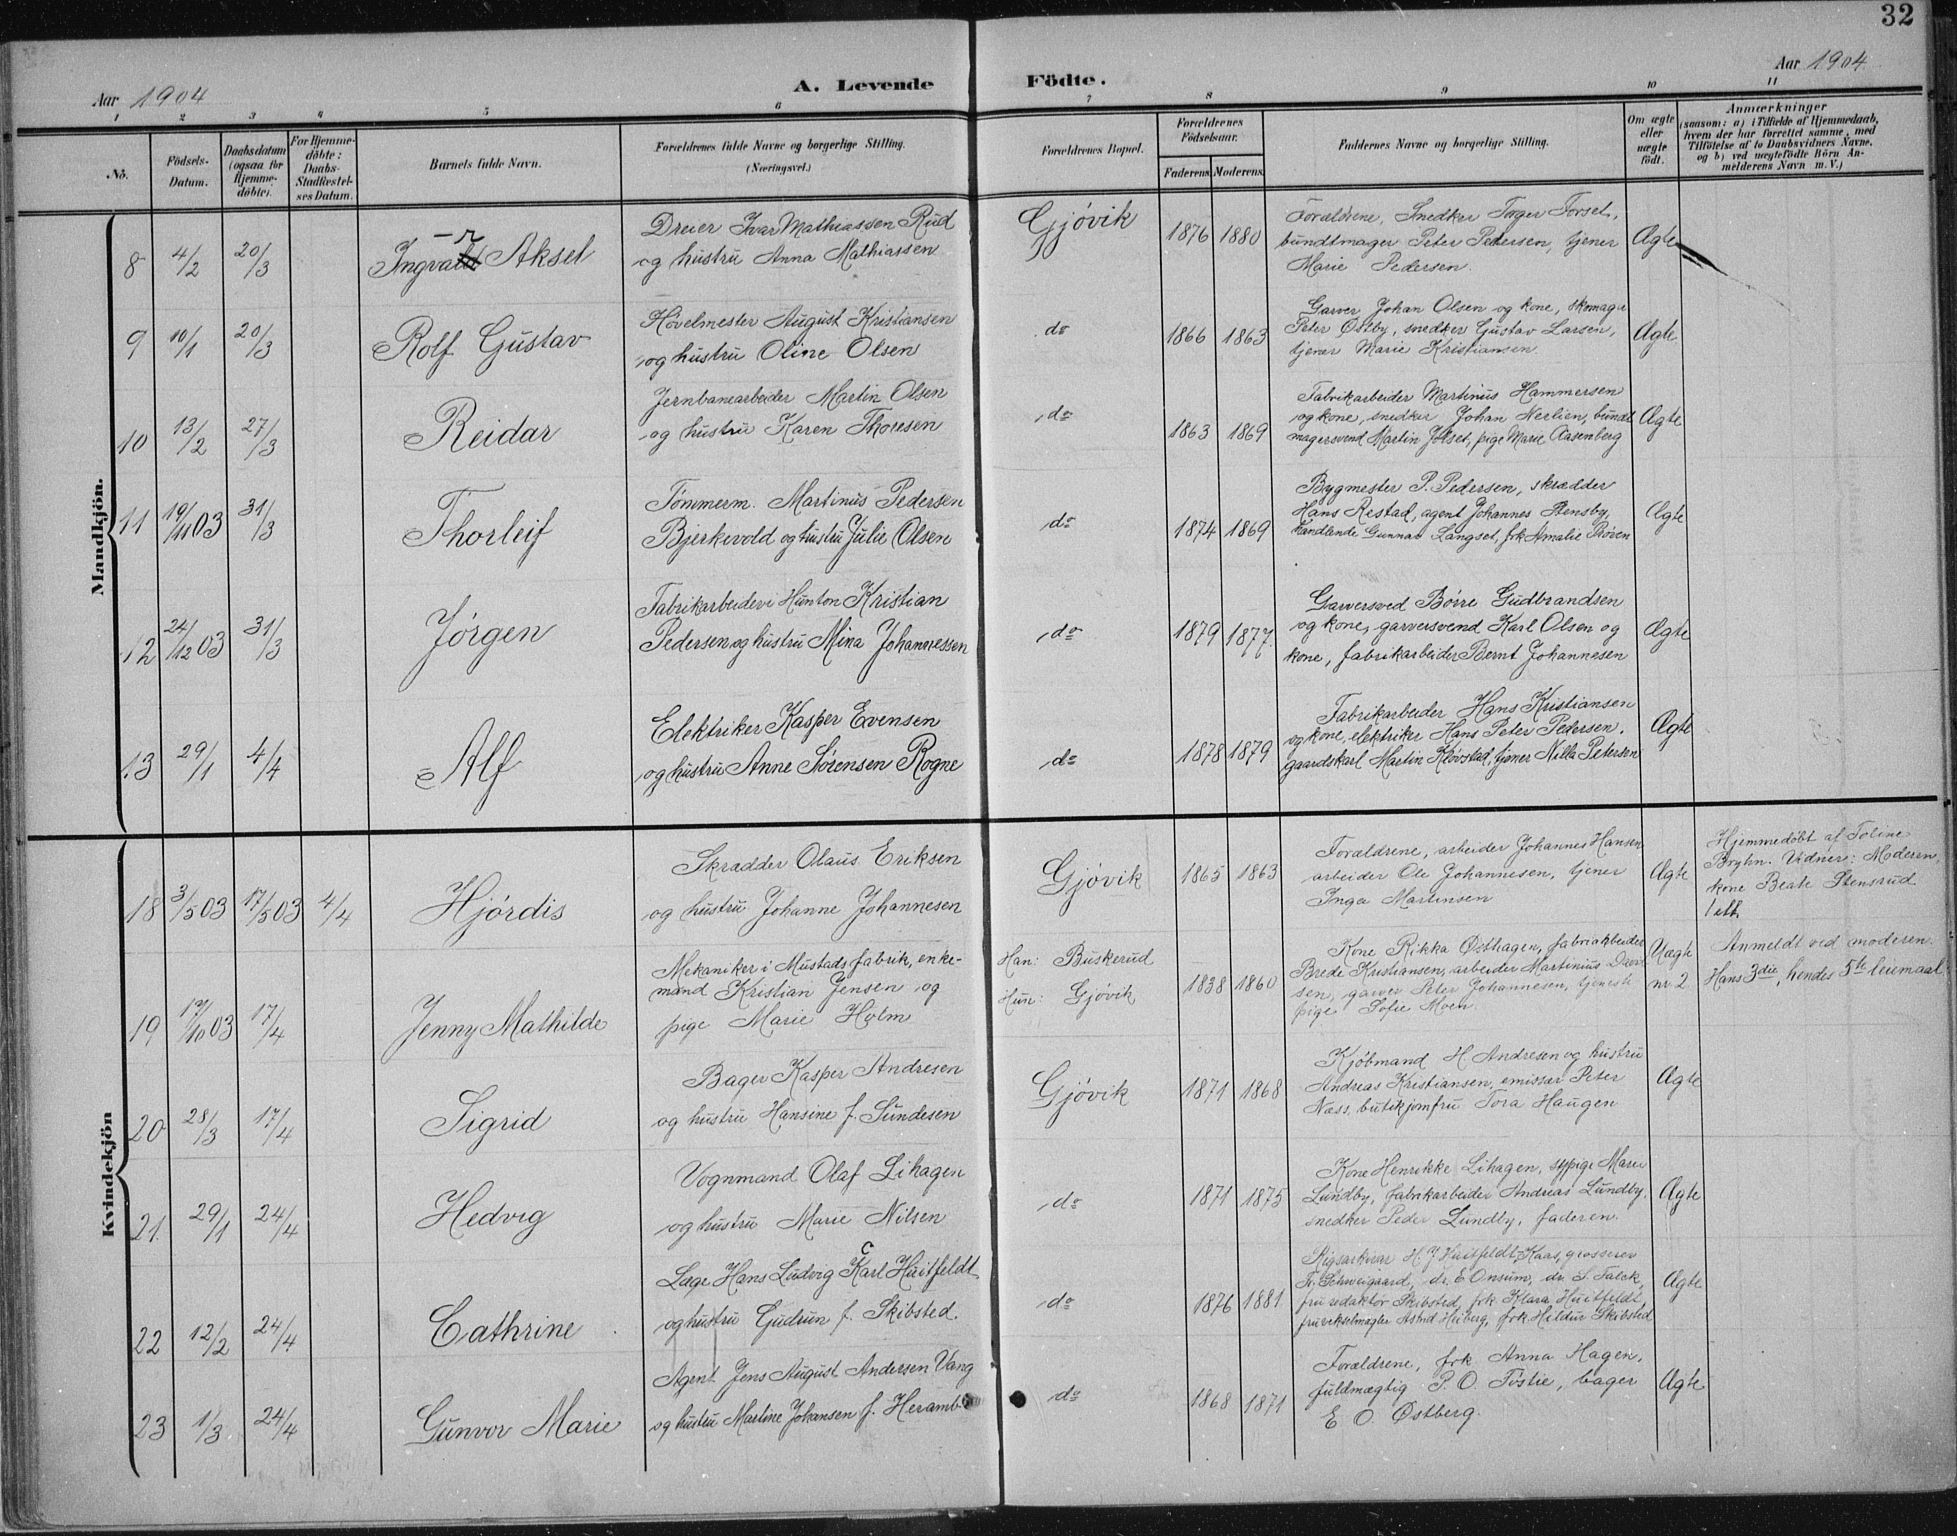 32
Aar 1904
A. Levende Födte.
Aar 1904
1 2 3 4 5 6 7 8 9 10 11
No.
Födsels-Datum.
Daabsdatum (ogsaa for Hjemmedöbte).
For Hjemmedöbte: Daabs-Stadfæstelses Datum.
Barnets fulde Navn.
Forældrenes fulde Navne og borgerlige Stilling.
(Næringsvei.)
Forældrenes Bopæl.
Forældrenes Födselsaar.
Faderens. Moderens.
Faddernes Navne og borgerlige Stilling.
Om ægte eller uægte födt.
Anmærkninger
(saasom: a) i Tilfælde af Hjemmedaab,
hvem der har forrettet samme, med
Tilföielse af to Daabsvidners Navne.
og b) ved uægtefödte Börn An-
melderens Navn m. V.)
Mandkjön.
8 4/2 20/3 Ingvar Aksel
Dreier Ivar Mathiassen Rud
og hustru Anna Mathiassen
Gjövik 1876 1880
Forældrene, Snedker Torger Forset,
bundtmager Peter Pedersen, tjener
Marie Pedersen.
Ægte
9 10/1 20/3 Rolf Gustav
Hövelmester August Kristiansen
og hustru Oline Olsen
do 1866 1863
Garver Johan Olsen og kone, skomager
Peter Østby, snedker Gustav Larsen,
tjener Marie Kristiansen.
Ægte
10 13/2 27/3 Reidar
Jernbanearbeider Martin Olsen
og hustru Karen Thoresen
do 1863 1869
Fabrikarbeider Martinus Hammersen
og kone, snedker Johan Nerlien, bundt
magersvend Martin Jölset, pige Marie Aasenberg
Ægte
11 19/11 03 31/3 Thorleif
Tömmerm. Martinus Pedersen
Bjerkevold og hustru Julie Olsen
do 1874 1869
Bygmester P. Pedersen, skrædder
Hans Restad, agent Johannes Stensby,
handlende Gunnar Langset, frk Amalie Pröven
Ægte
12 24/12 03 31/3 Jörgen
Fabrikarbeider i Hunton Kristian
Pedersen og hustru Mina Johannessen
do 1879 1877.
Garversved Börre Gudbrandsen
og kone, garversvend Karl Olsen og
kone, fabrikarbeider Bernt Johannesen
Ægte
13 29/1 4/4 Alf
Elektriker Kasper Evensen
og hustru Anne Sörensen Rogne
do 1878 1879
Fabrikarbeider Hans Kristiansen
og kone, elektriker Hans Peter Pedersen,
gaardskarl Martin Klövstad, tjener Nilla Petersen
Ægte
Kvindekjön
18 3/5 03 17/5 03 4/4 Hjördis
Skrædder Olaus Eriksen
og hustru Johanne Johannesen
Gjövik 1865 1863
Forældrene, arbeider Johannes Hansen
arbeider Ole Johannesen, tjener
Inga Martinsen
Ægte
Hjemmedöbt af Toline
Bryhn. Vidner: Moderen,
kone Beate Stensrud
19 17/10 03 17/4 Jenny Mathilde
Mekaniker i Mustads fabrik, enke-
mand Kristian Jensen og
pige Marie Holm
Han: Buskerud
Hun: Gjövik
1838 1860
Kone Rikka Østhagen, fabrikarbeider
Brede Kristiansen, arbeider Martinius
sen, garver Peter Johannesen, tjeneste
pige Sofie Moen
Uægte nr. 2
Anmeldt ved moderen.
Hans 3die, hendes 5te leiemaal
20 28/3 17/4 Sigrid
Bager Kasper Andresen
og hustru Hansine f. Sundesen
Gjövik 1871 1868
Kjöbmand H. Andresen og hustru
Andreas Kristiansen, emissær Peter
Næss, butikjomfru Tora Haugen
Ægte
21. 29/1 24/4 Hedvig
Vognmand Olaf Lihagen
og hustru Marie Nilsen
do 1871 1875
Kone Henrikke Lihagen, sypige Maren
Lundby, fabrikarbeider Andreas Lundby,
snedker Peder Lundby, faderen.
Ægte
22 12/2 24/4 Cathrine
Læge Hans Ludvig Carl Huitfeldt
og hustru Gudrun f. Skibsted.
do 1876 1881
Rigsarkivar H. J. Huitfeldt-Kaas, grosserer
Schweigaard, dr. E. Onsum, dr. S. Falck,
fru redaktör Skibsted, frk. Klara Huitfeldt
fru vekselmægler Astrid Heiberg, frk Hildur Skibsted
Ægte
23 1/3 24/4 Gunvor Marie
Agent Jens August Andersen Vang
og hustru Martine Johansen f. Heramb
do 1868 1871
Forældrene, frk Anna Hagen,
fuldmægtig P. O. Töstie, bager
E. O. Østberg.
Ægte